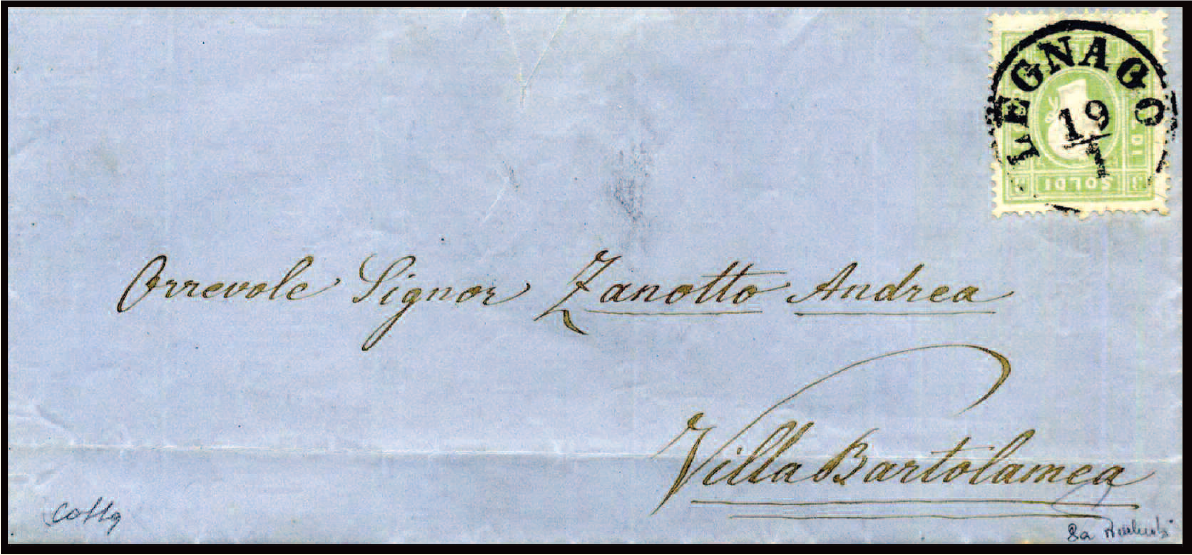 LEGNAGO
19
1
3 SOLDI 3
Orrevole Signor Zanotto Andrea
Villa Bartolamea